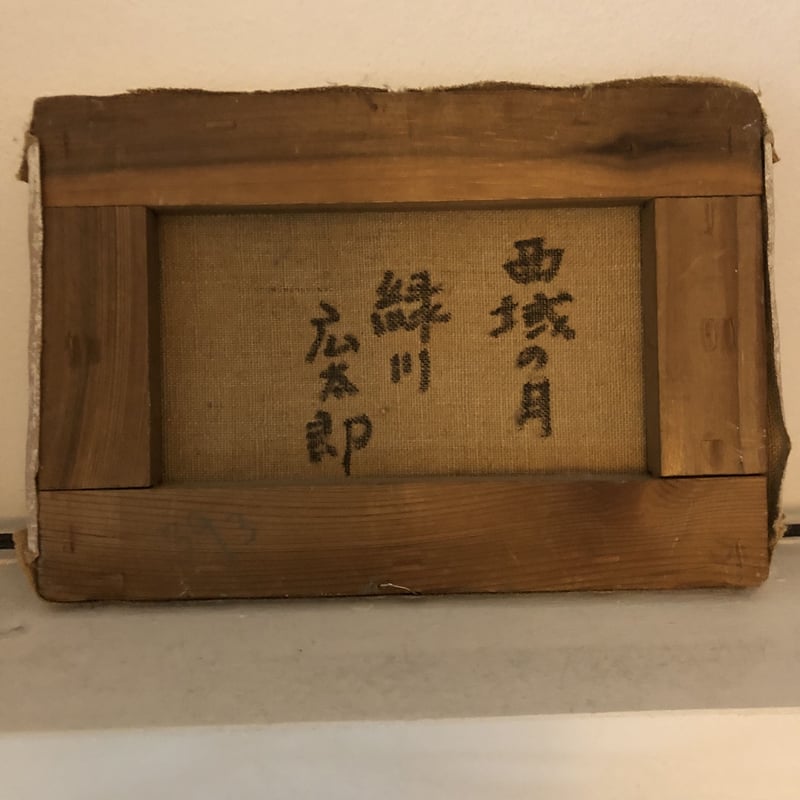 西域の月
緑川
広太郎
393